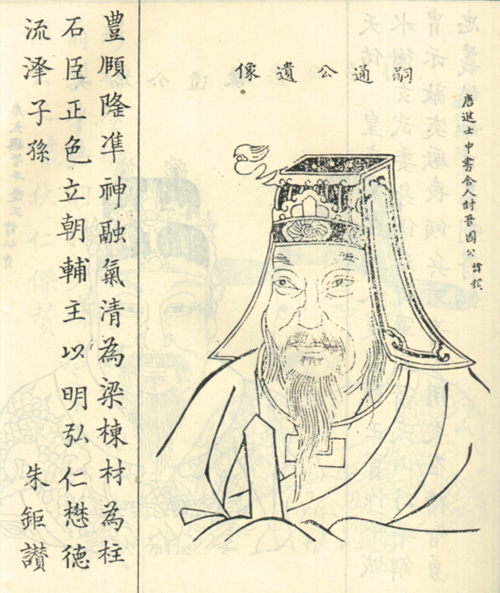 唐進士中書令人封晉國公諱
嗣通公遺像
豐頥隆凖神融氣清為梁棟材為柱
石臣正色立朝輔主以明弘仁懋德
流泽子孫 朱鉅讚